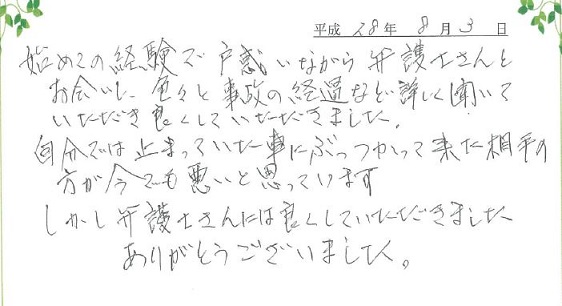 平成 28年 8月 3日
始めての経験で戸惑いながら弁護士さんと
お会いし、色々と事故の経過など詳しく聞いて
いただき良くしていただきました。
自分では止まっていた車にぶっつかって来た相手の
方が今でも悪いと思っています
しかし弁護士さんには良くしていただきました
ありがとうございました。